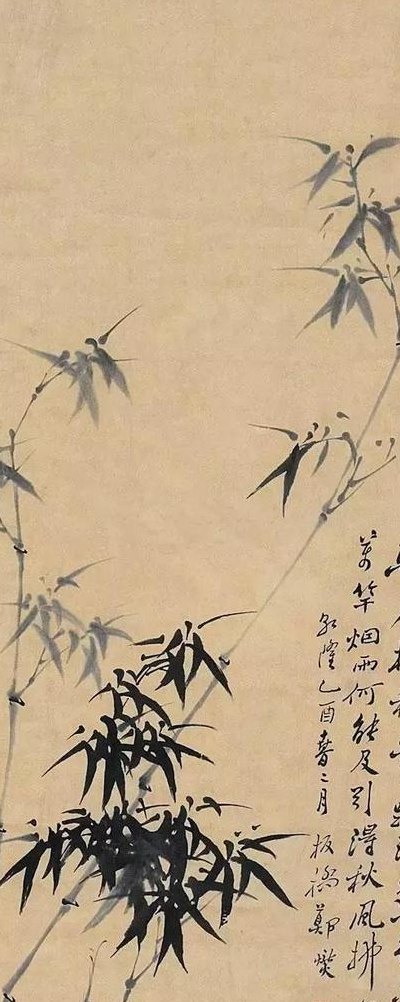 萬竿烟雨何能及引得秋風拂
乾隆乙酉春二月板橋鄭燮